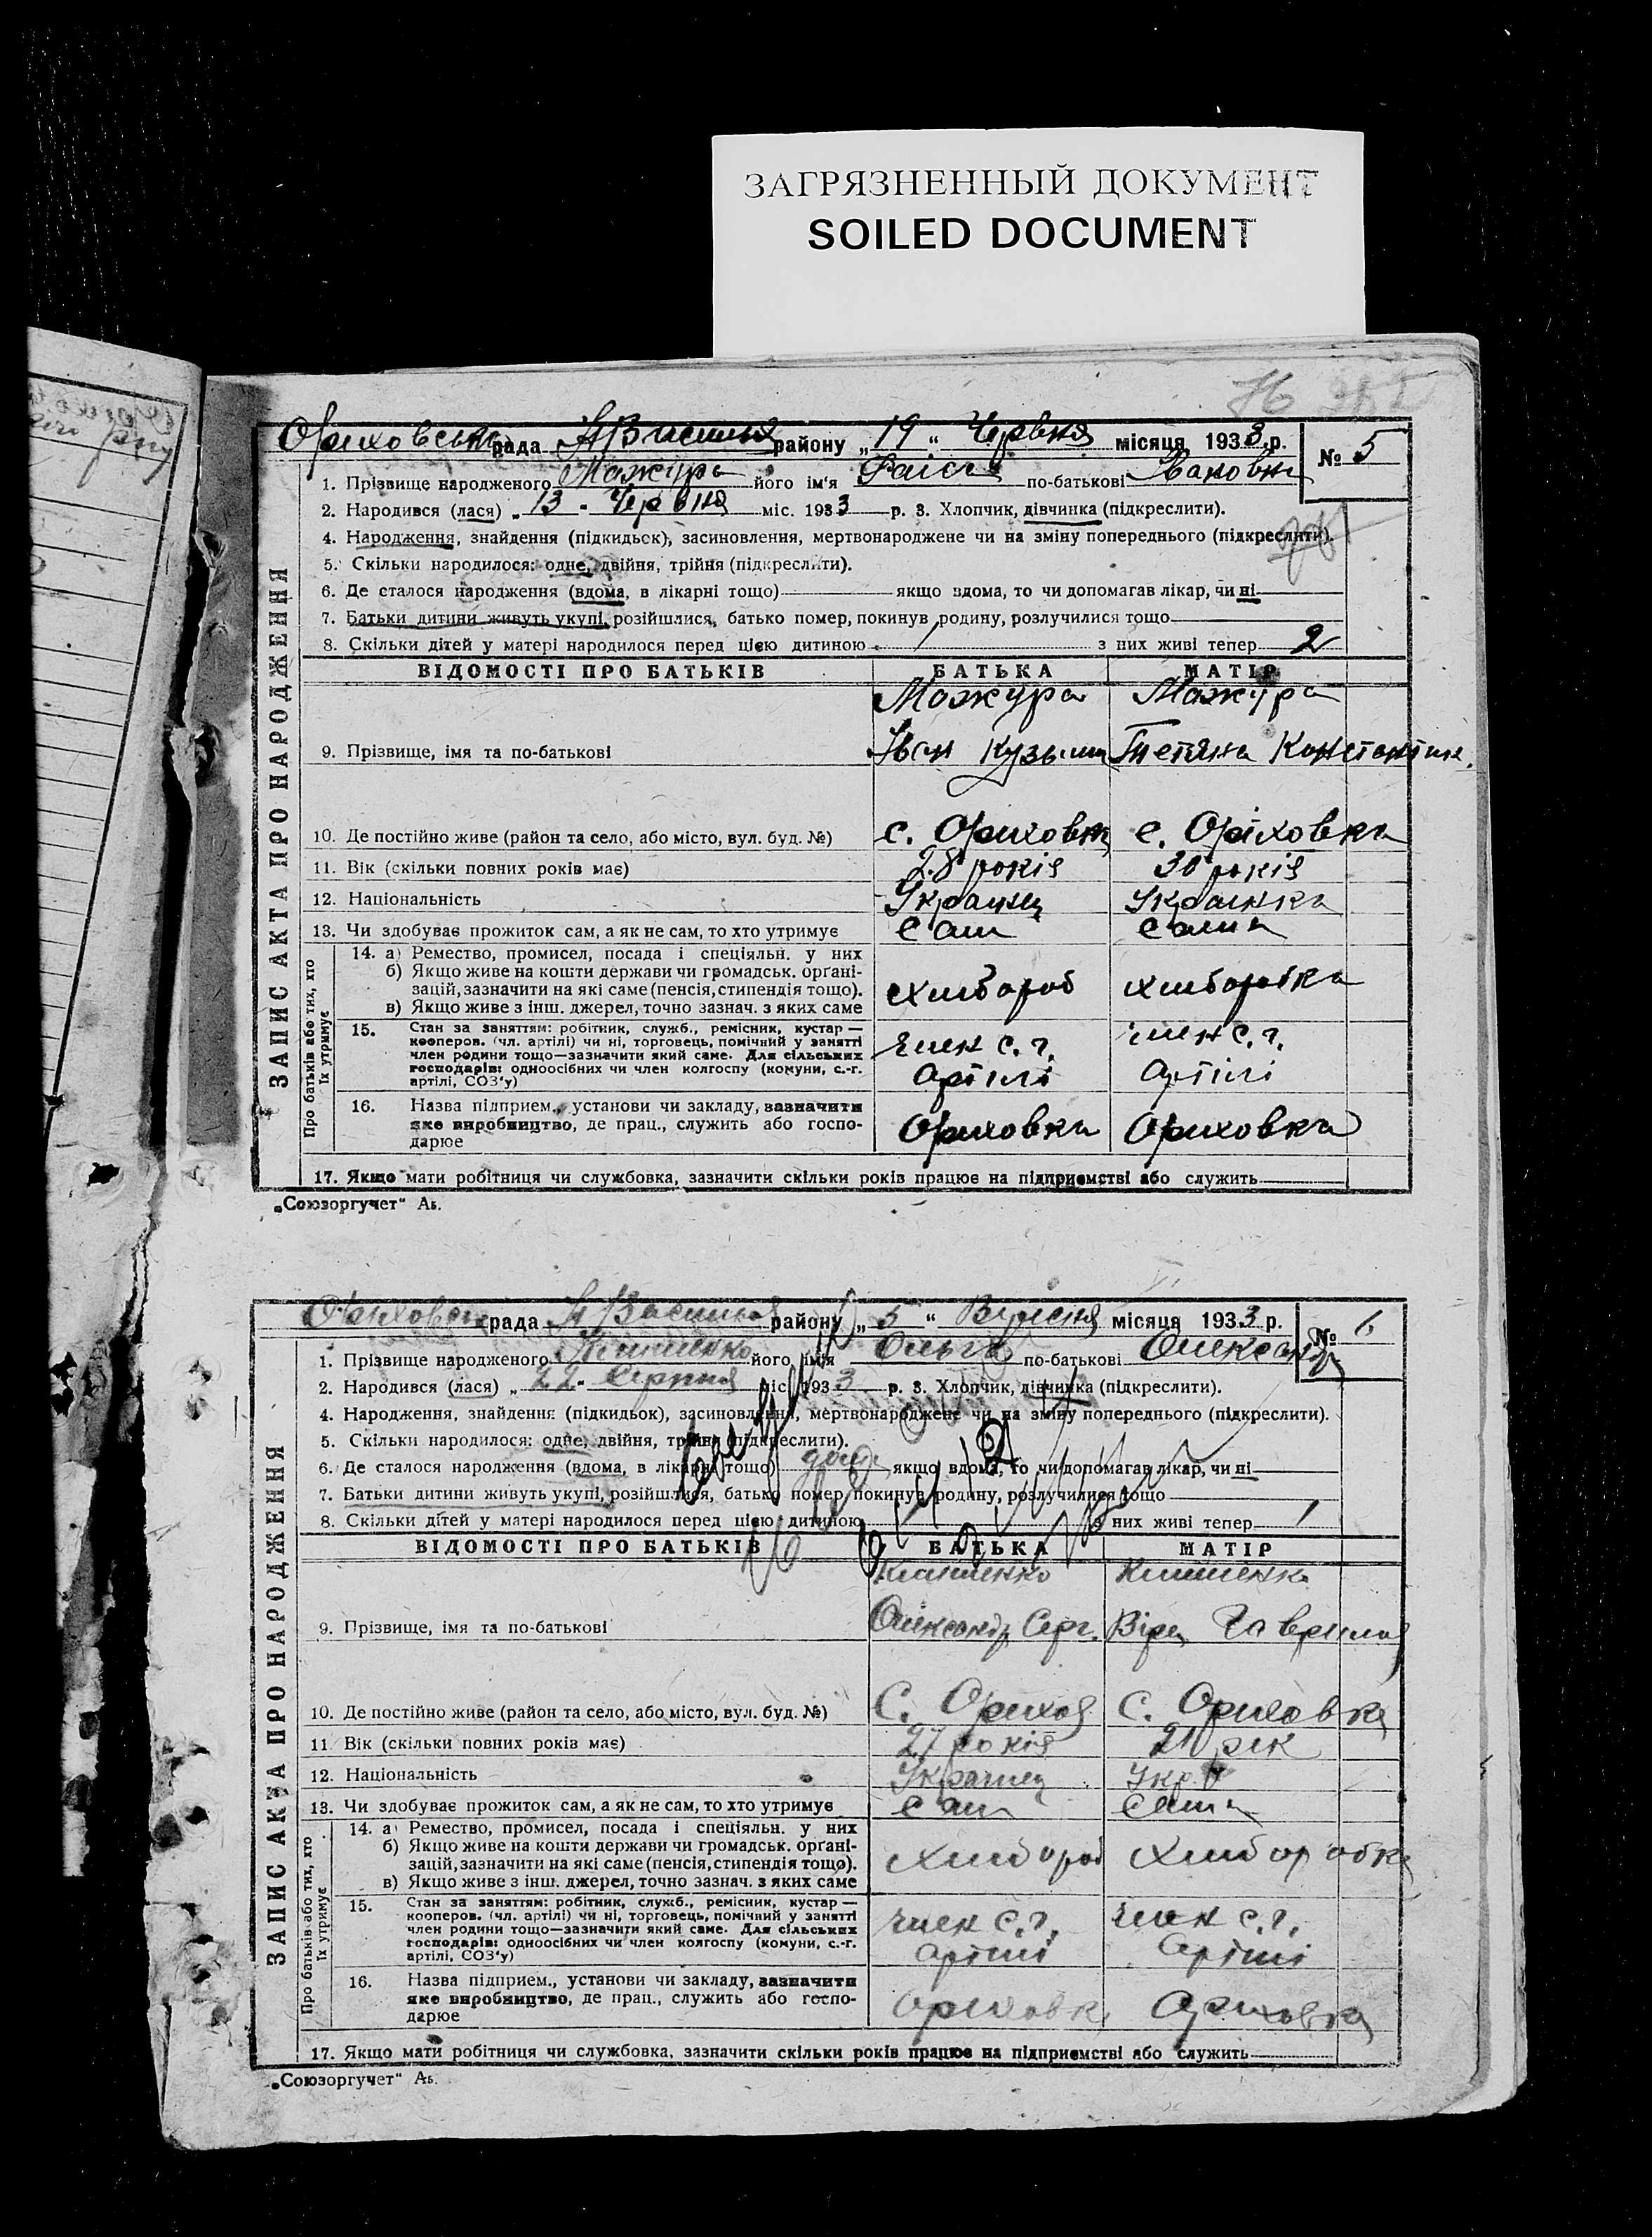 ЗАГРЯЗНЕННЫЙ ДОКУМЕНТ
SOILED DOCUMENT
Ориховська рада району „19“ Червня місяця 1933 р. № 5
1. Прізвище народженого Мажура його ім'я Раіса по-батькові Івановна
2. Народився (лася) „13„ Червня міс. 1933 р. 3. Хлопчик, дівчинка (підкреслити).
4. Народження, знайдення (підкидьок), засиновлення, мертвонароджене чи на зміну попереднього (підкреслити).
5. Скільки народилося: одне, двійня, трійня (підкреслити).
6. Де сталося народження (вдома, в лікарні тощо) якщо вдома, то чи допомагав лікар, чи ні
7. Батьки дитини живуть укупі, розійшлися, батько помер, покинув родину, розлучилися тощо
8. Скільки дітей у матері народилося перед цією дитиною 1 з них живі тепер 2
ВІДОМОСТІ ПРО БАТЬКІВ БАТЬКА МАТІР
ЗАПИС АКТА ПРО НАРОДЖЕННЯ
Мажура Мажура
9. Прізвище, імя та по-батькові Іван Кузьми Тетяна Константин.
10. Де постійно живе (район та село, або місто, вул. буд. №) с. Ориховка с. Оріховка
11. Вік (скільки повних років має) 28 років 30 років
12. Національність Украинец Украинка
13. Чи здобуває прожиток сам, а як не сам, то хто утримує сам сама
Про батьків або тих, хто їх утримує
14. а) Ремество, промисел, посада і спеціяльн. у них
б) Якщо живе на кошти держави чи громадськ. орґані-
зацій, зазначити на які саме (пенсія, стипендія тощо). хлибороб хлиборобка
в) Якщо живе з інш. джерел, точно зазнач. з яких саме
15. Стан за заняттям: робітник, служб., ремісник, кустар —
кооперов. (чл. артілі) чи ні, торговець, помічний у занятті член с. г. член с. г.
член родини тощо—зазначити який саме. Для сільських
господарів: одноосібних чи член колгоспу (комуни, с.-г. артілі артілі
артілі, СОЗ'у)
16. Назва підприєм., установи чи закладу, зазначити
яке виробництво, де прац., служить або госпо- Ориховка Ориховка
дарює
17. Якщо мати робітниця чи службовка, зазначити скільки років працює на підприємстві або служить
„Союзоргучет“ Аь.
Ориховська рада району „5“ Вересня місяця 1933 р. № 6
1. Прізвище народженого його ім'я Ольга по-батькові Олександр
2. Народився (лася) „22„ Серпня міс. 1933 р. 3. Хлопчик, дівчинка (підкреслити).
4. Народження, знайдення (підкидьок), засиновлення, мертвонароджене чи на зміну попереднього (підкреслити).
5. Скільки народилося: одне, двійня, трійня (підкреслити).
6. Де сталося народження (вдома, в лікарні тощо) дома якщо вдома, то чи допомагав лікар, чи ні
7. Батьки дитини живуть укупі, розійшлися, батько помер, покинув родину, розлучилися тощо
8. Скільки дітей у матері народилося перед цією дитиною з них живі тепер 1
ВІДОМОСТІ ПРО БАТЬКІВ БАТЬКА МАТІР
ЗАПИС АКТА ПРО НАРОДЖЕННЯ
9. Прізвище, імя та по-батькові Олександр Серг. Віра Гаврилов
10. Де постійно живе (район та село, або місто, вул. буд. №) С. Орихов С. Ориховка
11. Вік (скільки повних років має) 27 років 21 рік
12. Національність Украинец Укр
13. Чи здобуває прожиток сам, а як не сам, то хто утримує сам сама
Про батьків або тих, хто їх утримує
14. а) Ремество, промисел, посада і спеціяльн. у них
б) Якщо живе на кошти держави чи громадськ. орґані-
зацій, зазначити на які саме (пенсія, стипендія тощо). хлибороб хлиборобка
в) Якщо живе з інш. джерел, точно зазнач. з яких саме
15. Стан за заняттям: робітник, служб., ремісник, кустар —
кооперов. (чл. артілі) чи ні, торговець, помічний у занятті член с. г. член с. г.
член родини тощо—зазначити який саме. Для сільських
господарів: одноосібних чи член колгоспу (комуни, с.-г. артілі артілі
артілі, СОЗ'у)
16. Назва підприєм., установи чи закладу, зазначити
яке виробництво, де прац., служить або госпо- Ориховка Ориховка
дарює
17. Якщо мати робітниця чи службовка, зазначити скільки років працює на підприємстві або служить
„Союзоргучет“ Аь.